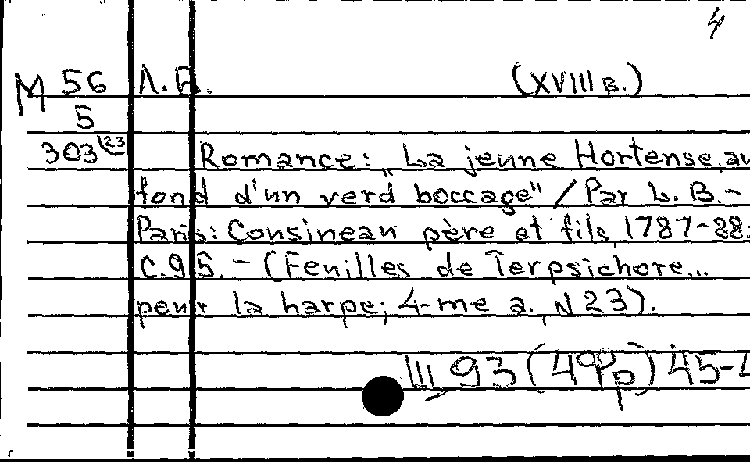 4
М 56 Л.Б. (XVIII в.)
5
303/23 Romance: „La jeune Hortense, au
fond d'un verd boccage" / Par L. B. -
Paris: Cousineau père et fils, 1787-88:
C.95. - (Feuilles de Terpsichore...
pour la harpe; 4-me a., N 23).
Ш 93 (4Фр) 45-4